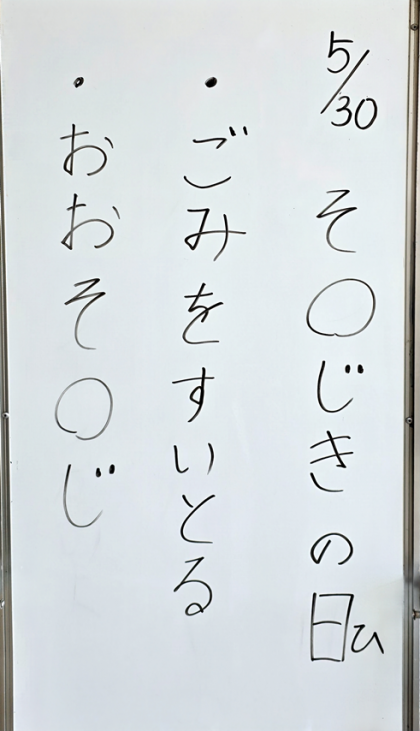 5/30 そ〇じきの日ひ
・ごみをすいとる
・おおそ〇じ